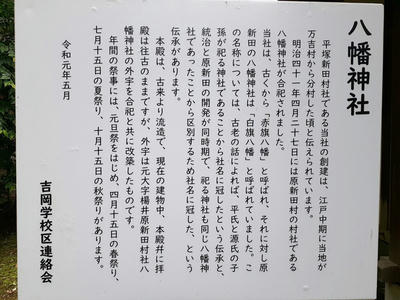 八幡神社
平塚新田村社である当社の創建は、江戸中期に当地が
万吉村から分村した頃と伝えられています。
明治四十一年四月二十七日には原新田村の村社である
八幡神社が合祀されました。
当社は、古くから「赤旗八幡」と呼ばれ、それに対し原
新田の八幡神社は、「白旗八幡」と呼ばれていました。こ
の名称については、古老の話によれば、平氏と源氏の子
孫が祀る神社であることから社名に冠したという伝承と、
統治と原新田の開発が同時期で、祀る神社も同じ八幡神
社であったことから区別するため社名に冠した、という
伝承があります。
本殿は、古来より流造で、現在の建物中、本殿幷に拝
殿は往古のままですが、外宇は元大字楊井原新田村社八
幡神社の外宇を合祀と共に改築したものです。
年間の祭事には、元旦祭をはじめ、四月十五日の春祭り、
七月十五日の夏祭り、十月十五日の秋祭りがあります。
令和元年五月
吉岡学校区連絡会